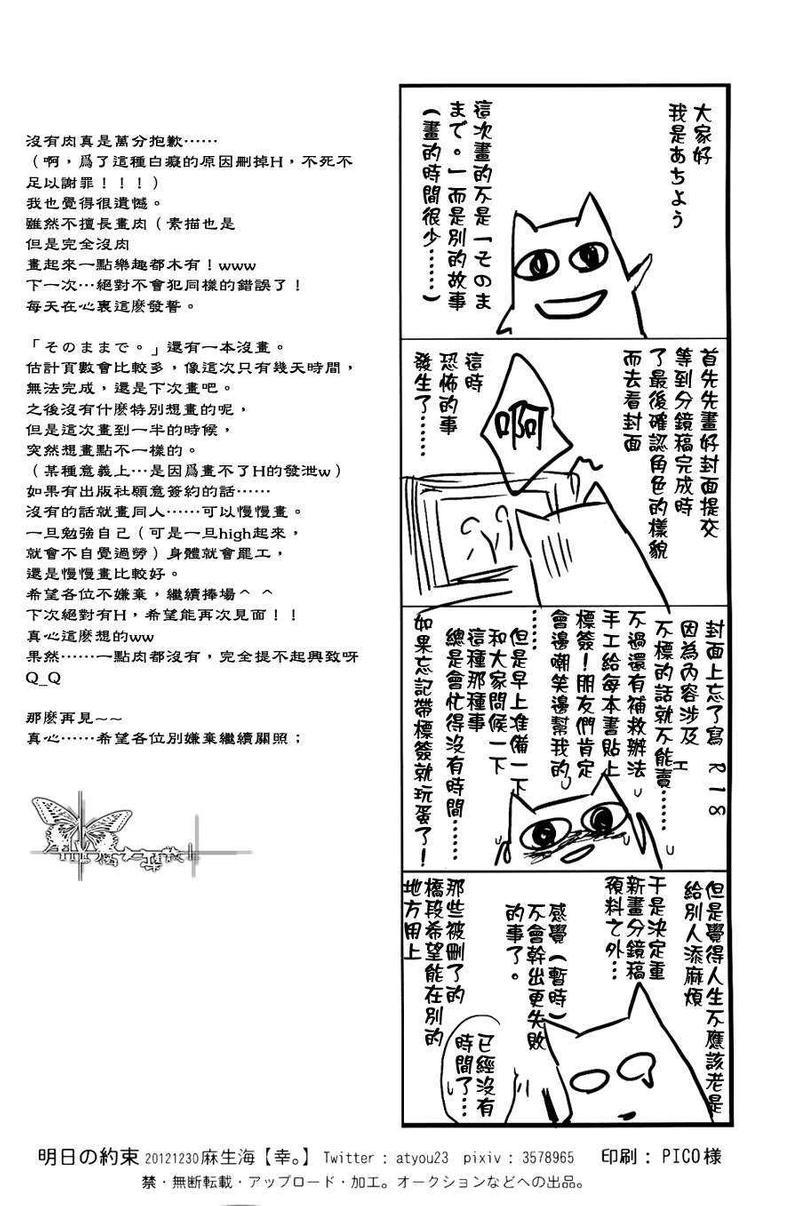 大家好
我是あちょう
這次畫的不是「そのま
まで。」而是別的故事
（畫的時間很少……）
首先先畫好封面提交
等到分鏡稿完成時
了最後確認角色的樣貌
而去看封面
這時
恐怖的事
發生了……
啊
封面上忘了寫 R18
因為內容涉及 H
不標的話就不能賣……
不過還有補救辦法
手工給每本書貼上
標簽！朋友們肯定
會邊嘲笑邊幫我的
……
但是早上准備一下
和大家問候一下
這種那種事
總是會忙得沒有時間……
如果忘記帶標簽就玩蛋了！
但是覺得人生不應該老是
給別人添麻煩
于是決定重
新畫分鏡稿
預料之外…
感覺（暫時）
不會幹出更失敗
的事了。
那些被刪了的
橋段希望能在別的
地方用上
已經沒有
時間了…
沒有肉真是萬分抱歉……
（啊，爲了這種白癡的原因刪掉H，不死不
足以謝罪！！！）
我也覺得很遺憾。
雖然不擅長畫肉（素描也是
但是完全沒肉
畫起來一點樂趣都木有！www
下一次…絕對不會犯同樣的錯誤了！
每天在心裏這麽發誓。
「そのままで。」還有一本沒畫。
估計頁數會比較多，像這次只有幾天時間，
無法完成，還是下次畫吧。
之後沒有什麽特別想畫的呢，
但是這次畫到一半的時候，
突然想畫點不一樣的。
（某種意義上…是因爲畫不了H的發泄w）
如果有出版社願意簽約的話……
沒有的話就畫同人……可以慢慢畫。
一旦勉強自己（可是一旦high起來，
就會不自覺過勞）身體就會罷工，
還是慢慢畫比較好。
希望各位不嫌棄，繼續捧場^ ^
下次絕對有H，希望能再次見面！！
真心這麽想的ww
果然……一點肉都沒有，完全提不起興致呀
Q_Q
那麽再見~~
真心……希望各位別嫌棄繼續關照；
明日の約束 20121230麻生海【幸。】 Twitter : atyou23 pixiv : 3578965 印刷 : PICO様
禁・無断転載・アップロード・加工。オークションなどへの出品。